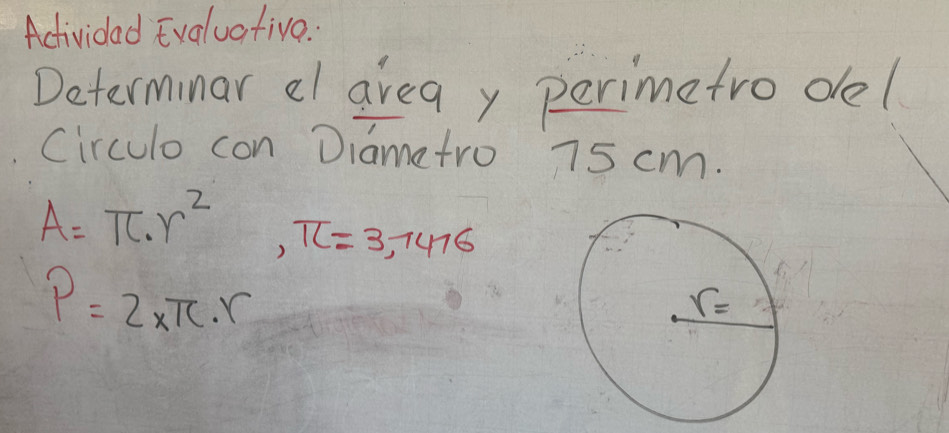 Actividad Evaluativa:
Determinar el área y perimetro del
Circulo con Diámetro 15 cm.
A = π.r²
, π = 3,1416
P = 2 x π.r
r =